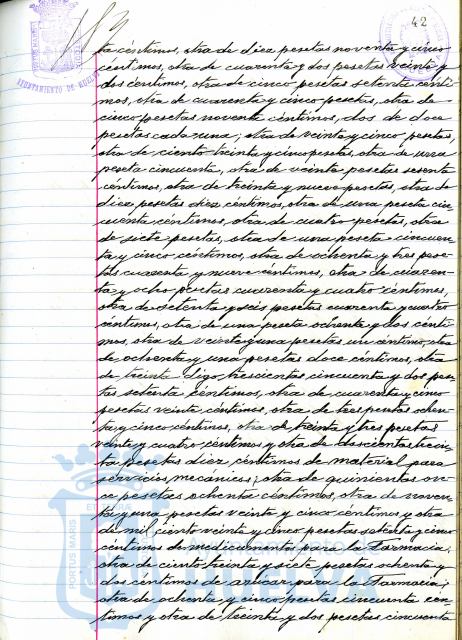 42
AYUNTAMIENTO DE HUELVA
ta céntimos, otra de diez pesetas noventa y cinco
céntimos, otra de cuarenta y dos pesetas veinte y
dos céntimos, otra de cinco pesetas setenta cénti-
mos, otra de cuarenta y cinco pesetas, otra de
cinco pesetas noventa céntimos, dos de doce
pesetas cada una; otra de veinte y cinco pesetas,
otra de ciento treinta y cinco pesetas, otra de una
peseta cincuenta, otra de veinte pesetas sesenta
céntimos, otra de treinta y nueve pesetas, otra de
diez pesetas diez céntimos, otra de una peseta cin-
cuenta céntimos, otra de cuatro pesetas, otra
de siete pesetas, otra de una peseta cincuen-
ta y cinco céntimos, otra de ochenta y tres pese-
tas cuarenta y nueve céntimos, otra de cuaren-
ta y ocho pesetas cuarenta y cuatro céntimos,
otra de setenta y seis pesetas cuarenta y cuatro
céntimos, otra de una peseta ochenta y dos cénti-
mos, otra de veinte y una pesetas un céntimo, otra
de ochenta y una pesetas doce céntimos, otra
de treinta digo, trescientas cincuenta y dos pese-
tas setenta céntimos, otra de cuarenta y cinco
pesetas veinte céntimos, otra de tres pesetas ochen-
ta y cinco céntimos, otra de treinta y tres pesetas
veinte y cuatro céntimos y otra de doscientas trein-
ta pesetas diez céntimos de material para
servicios mecánicos; otra de quinientas on-
ce pesetas ochenta céntimos, otra de noven-
ta y una pesetas veinte y cinco céntimos y otra
de mil ciento veinte y cinco pesetas setenta y cinco
céntimos de medicamentos para la Farmacia;
otra de ciento treinta y siete pesetas ochenta y
dos céntimos de azúcar para la Farmacia;
otra de ochenta y cinco pesetas cincuenta cén-
timos y otra de treinta y dos pesetas cincuenta
PORTUS MARIS
Ayuntamiento de
HUELVA